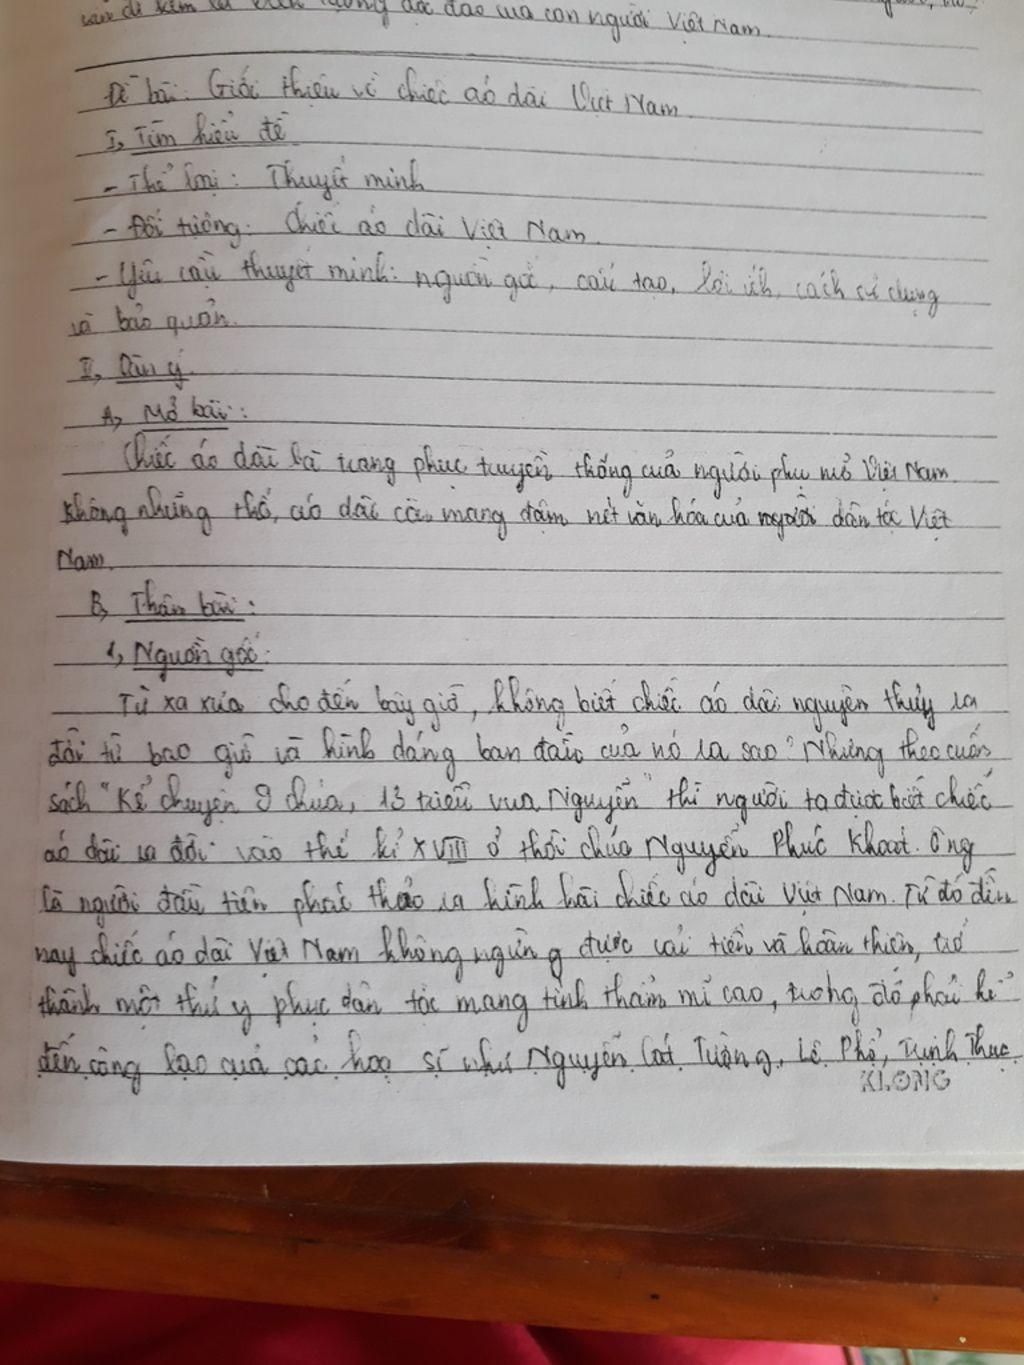 con người Việt Nam.
Đề bài: Giới thiệu về chiếc áo dài Việt Nam.
I, Tìm hiểu đề
- Thể loại: Thuyết minh
- Đối tượng: Chiếc áo dài Việt Nam.
- Yêu cầu thuyết minh: nguồn gốc, cấu tạo, lợi ích, cách sử dụng
và bảo quản.
II, Dàn ý.
A, Mở bài:
Chiếc áo dài là trang phục truyền thống của người phụ nữ Việt Nam.
Không những thế, áo dài còn mang đậm nét văn hóa của người dân tộc Việt
Nam.
B, Thân bài:
1, Nguồn gốc:
Từ xa xưa cho đến bây giờ, không biết chiếc áo dài nguyên thủy ra
đời từ bao giờ và hình dáng ban đầu của nó ra sao? Nhưng theo cuốn
sách "Kể chuyện 9 chúa, 13 triều vua Nguyễn" thì người ta được biết chiếc
áo dài ra đời vào thế kỉ XVIII ở thời chúa Nguyễn Phúc Khoát. Ông
là người đầu tiên phác thảo ra hình hài chiếc áo dài Việt Nam. Từ đó đến
nay chiếc áo dài Việt Nam không ngừng được cải tiến và hoàn thiện, trở
thành một thứ y phục dân tộc mang tính thẩm mĩ cao, trong đó phải kể
đến công lao của các hoạ sĩ như Nguyễn Cát Tường, Lê Phổ, Trịnh Thục
KLONG